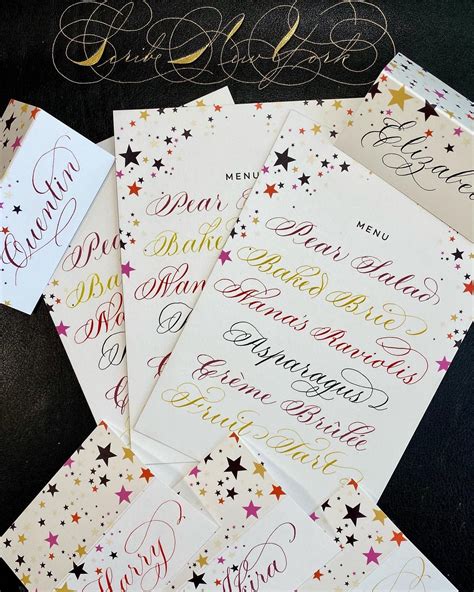 Scribe New York
Elizab
Quentin
MENU
Pear Sal
Bake
Nana
MENU
Pear Salad
Baked Brie
Nana's Raviolis
Asparagus
Crème Brûlée
Fruit Tart
Pea
Ba
Na
Harry
kira